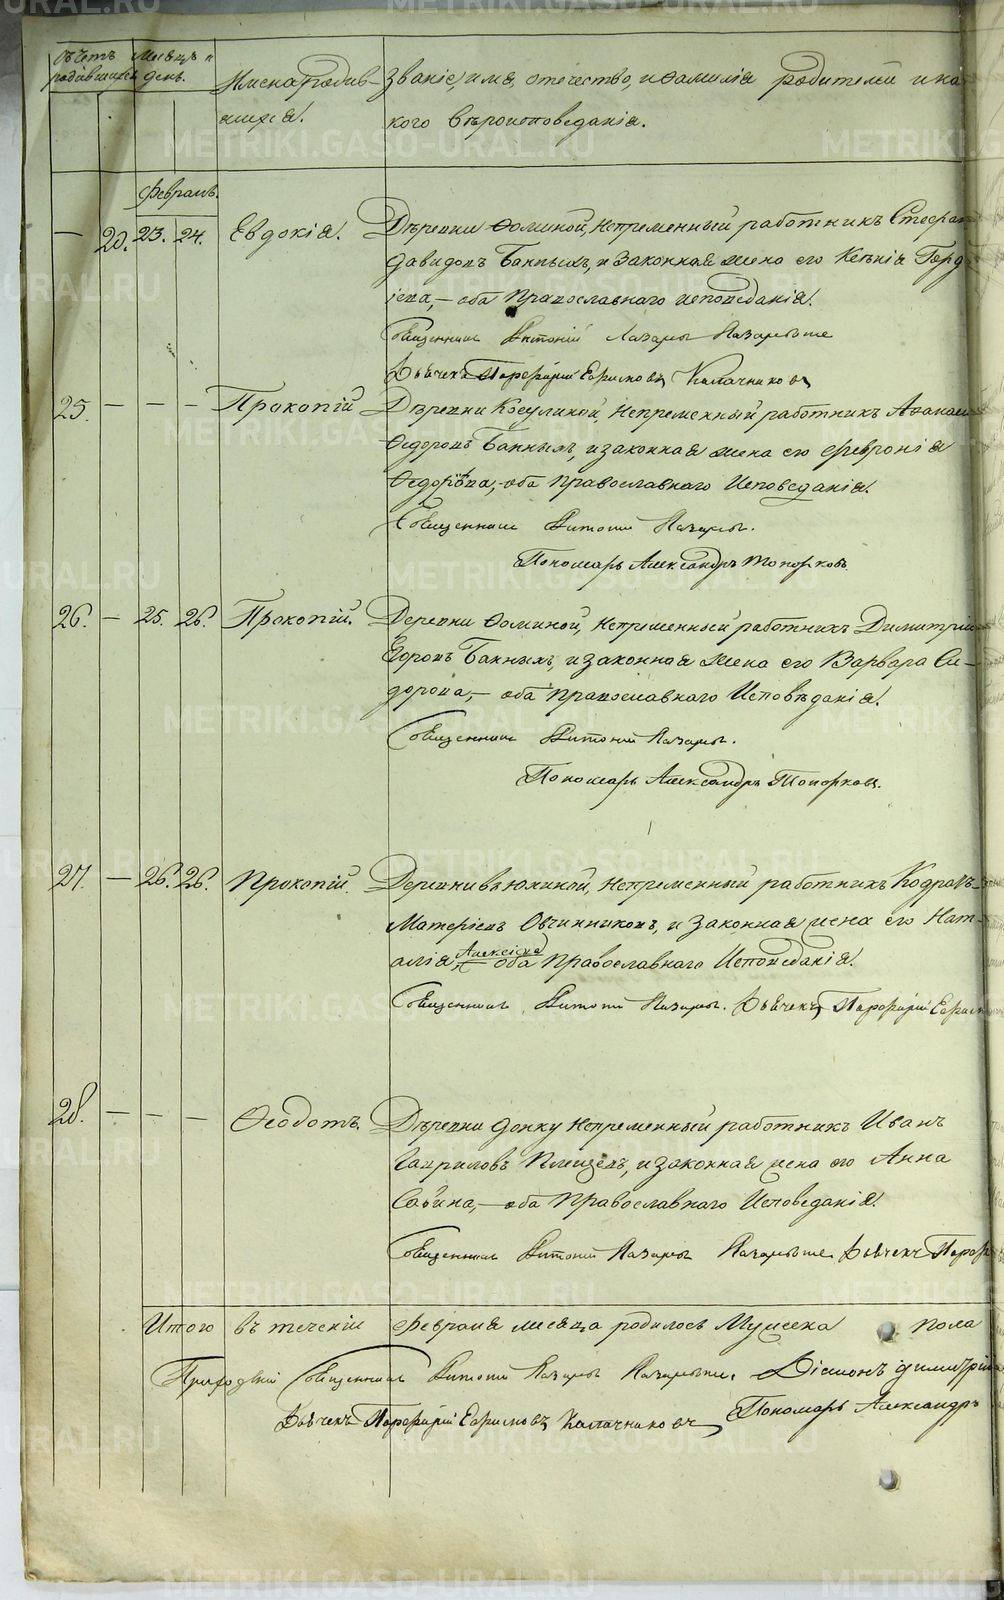 Счетъ родившихся
Месяцъ и день.
Имена родив-
шихся.
Званіе, имя, отечество, и фамилія родителей и ка-
кого вѣроисповеданія.
Февраль.
— 20. 23. 24. Евдокія. Деревни Фоминой, Непременный работникъ Стефан
Давидовъ Банныхъ, и законная жена его Ксенія Горд
іева, — оба Православнаго исповеданія.
Священник Антоній Лазаревъ
Дьячекъ Порфирій Ефимовъ Калачниковъ
25. — — — Прокопій Деревни Косулиной, Непременный работникъ Афанас
Федоровъ Банныхъ, и законная жена его Февронія
Федорова, — оба Православнаго Исповеданія.
Священник Антоній Лазаревъ.
Пономарь Александръ Топорковъ.
26. — 25. 26. Прокопій. Деревни Фоминой, Непременный работникъ Димитрій
Егоровъ Банныхъ, и законная жена его Варвара Си-
дорова, — оба Православнаго Исповѣданія.
Священник Антоній Лазаревъ.
Пономарь Александръ Топорковъ.
27. — 26. 26. Прокопій. Деревни Вьюхиной, Непременный работникъ Кодратъ
Матфеевъ Овчинниковъ, и законная жена его Нат-
алія Алексіева оба Православнаго Исповеданія.
Священник Антоній Лазаревъ. Дьячекъ Порфирій Ефим
28. — — — Феодотъ. Деревни Непременный работникъ Иванъ
Гавриловъ и законная жена его Анна
Савина, — оба Православнаго Исповеданія.
Священник Антоній Лазаревъ Дьячекъ Порф
Итого въ теченіи февраля месяца родилось Мужеска пола
Приходскій Священник Антоній Лазаревъ Діаконъ Димитрій
Дьячекъ Порфирій Ефимовъ Калачниковъ Пономарь Александръ
METRIKI.GASO-URAL.RU